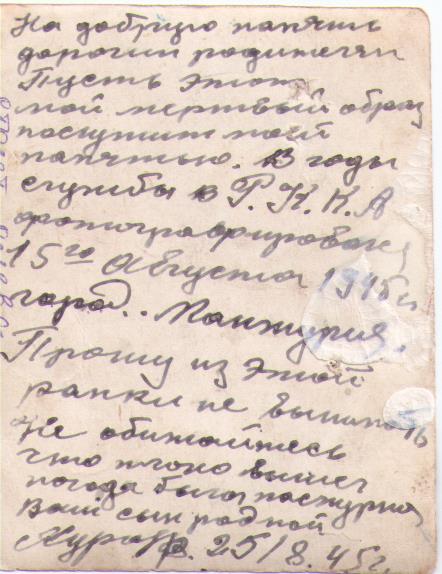 На добрую память
дорогим родителям
Пусть этот
мой мертвый образ
послужит моей
памятью. В годы
службы в Р.К.К.А
фотографирован
15го Августа 1945 г.
город.. Манжурия.
Прошу из этой
рамки не вынимать
Не обижайтесь
что плохо вышел
погода была паскурная
Ваш сын родной
25/8. 45 г.